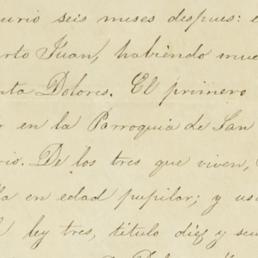 murio seis meses despues:
Juan, habiendo
Dolores. El primero
en la Parroquia de San
De los tres que viven,
en edad pupilar; y
ley tres, titulo diez y